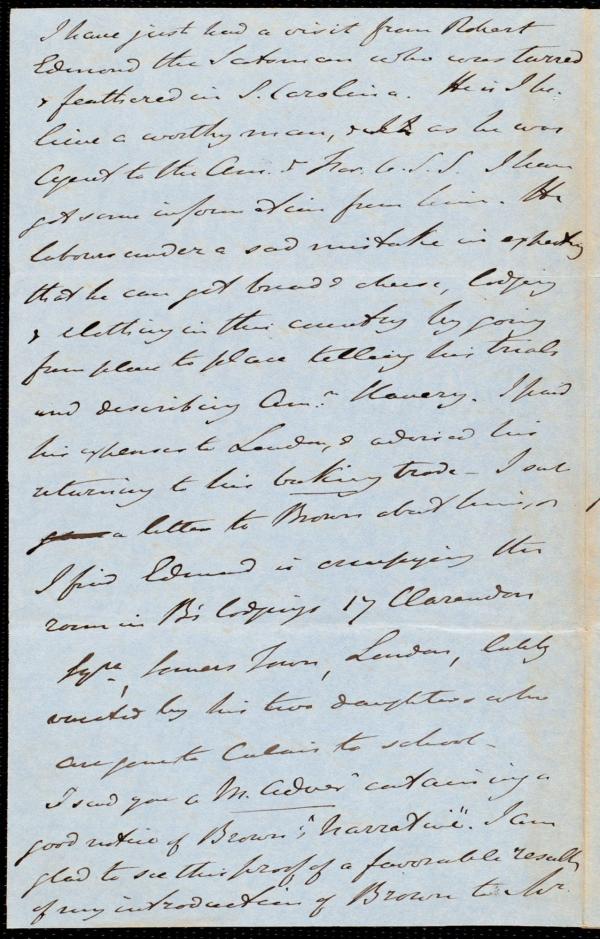 I have just had a visit from Robert
Edmond the Scotsman who was tarred
& feathered in S. Carolina. He is I be-
lieve a worthy man, & as he was
Agent to the Am. & For. A. S. S. I have
got some information from him. He
labours under a sad mistake in expecting
that he can get bread & cheese, lodging
& clothing in this country by going
from place to place telling his trials
and describing Amn. Slavery. I paid
his expenses to London, & advised his
returning to his baking trade - I sent
a letter to Brown about him, &
I find Edmond is occupying the
room in B's lodgings 17 Clarendon
Sqre, Somers Town, London, lately
vacated by his two daughters who
are gone to Calais to school -
I send you a M. Adver containing a
good notice of Brown's "Narrative". I am
glad to see this proof of a favorable result
of my introduction of Brown to Mr.